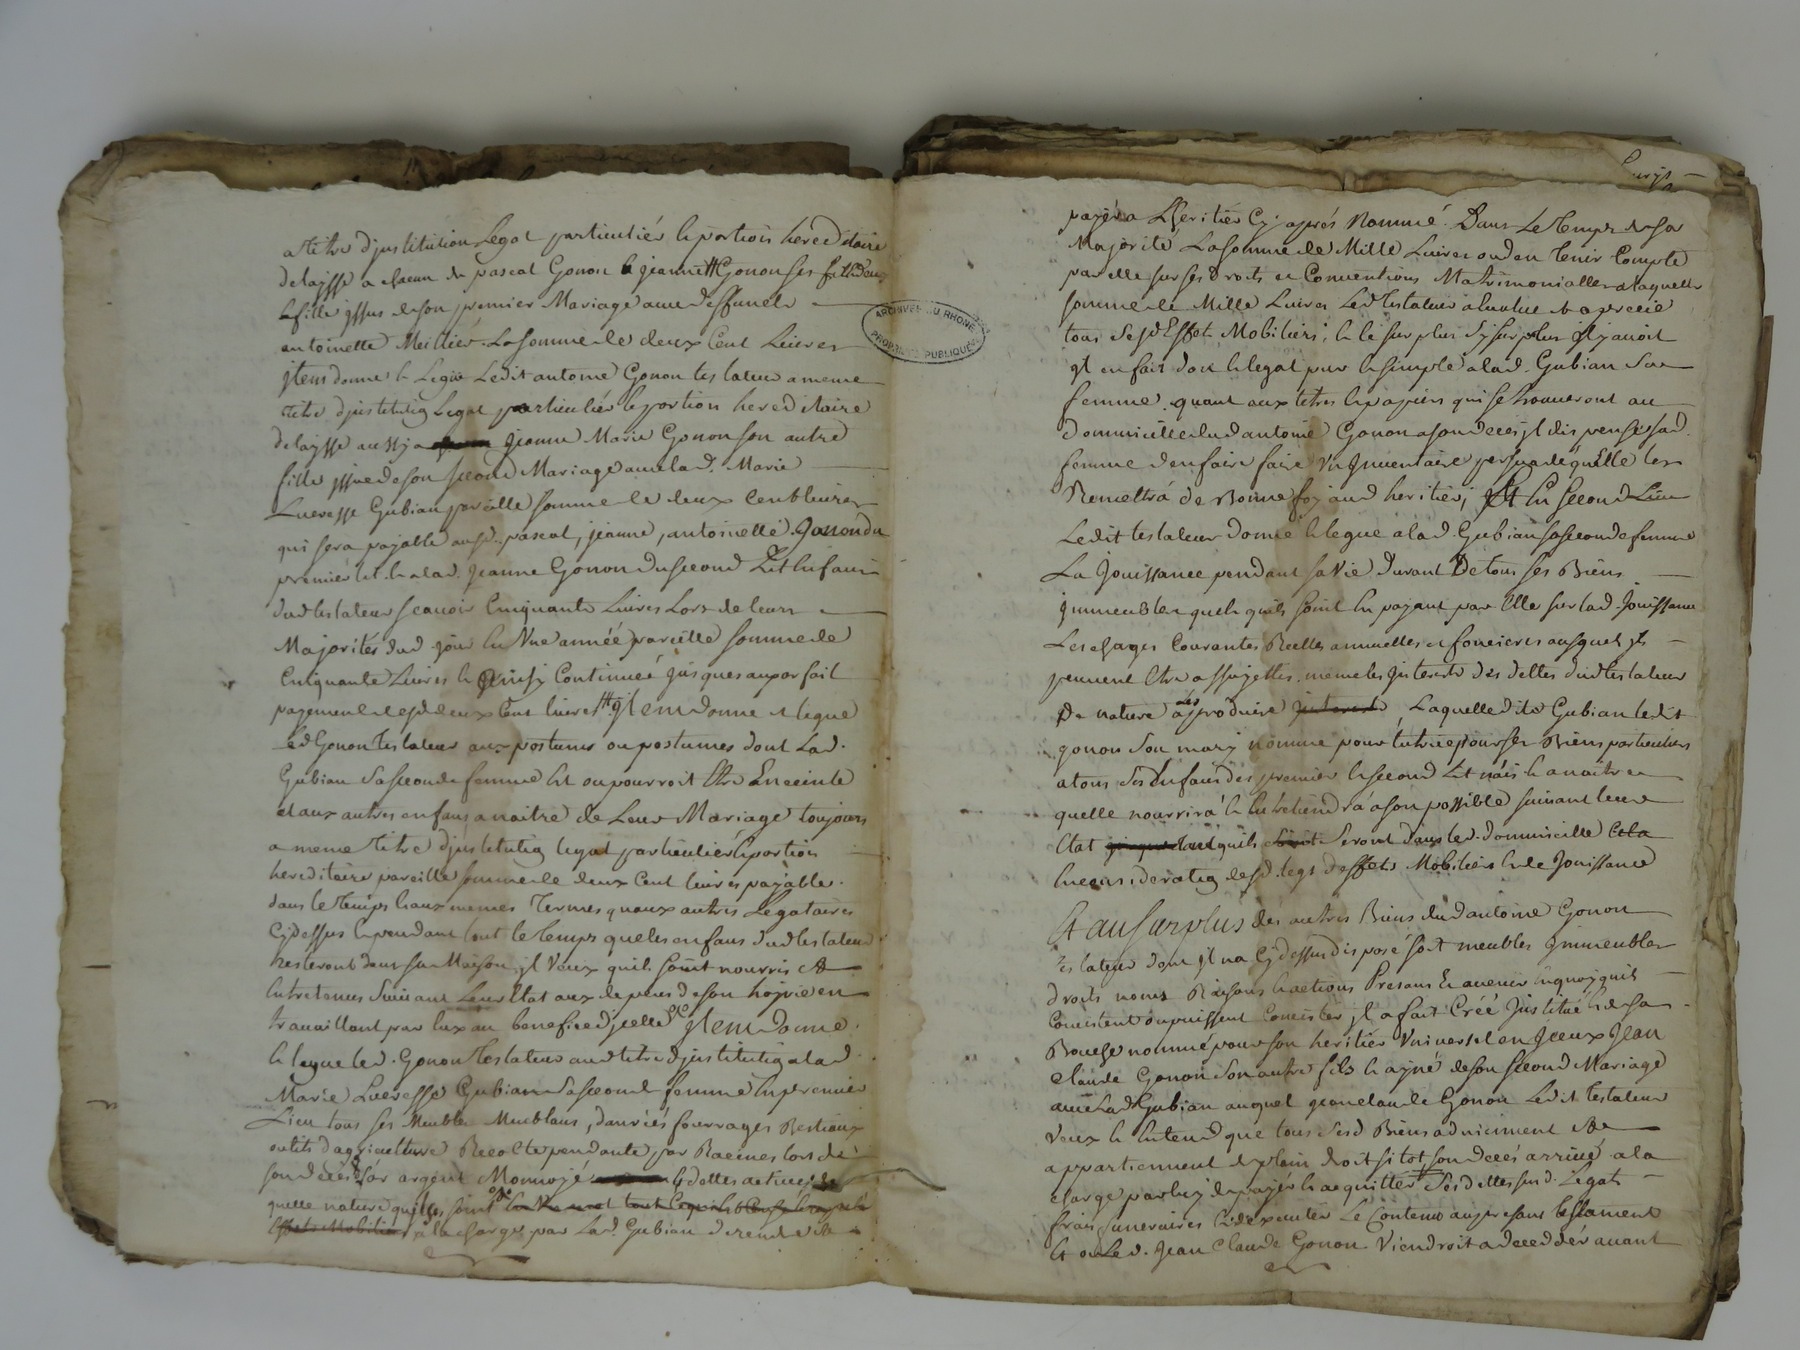 a titre d'jnstitution Legat particulier & portion hereditaire
delaysse a chacun de pascal Gonon & jeannette Gonon ses fils
& fille yssus de son premier Mariage avec deffuncte
antoinette Meillier La somme de deux Cent Livres
jtem donne & Legue Ledit antoine Gonon testateur a meme
titre d'jnstitutig Legat particulier & portion hereditaire
delaysse aussy a jeanne Marie Gonon son autre
fille yssue de son second Mariage avec lad. Marie
Lucresse Gubian pareille somme de deux Cent Livres
qui sera payable ausd. pascal, jeanne, antoinette Gonon du
premier lit & a lad. jeanne Gonon du second Lit Enfans
dud testateur scavoir Cinquante Livres Lors de leurs
Majorités dud jour En Une année pareille somme de
Cinquante Livres & ainsy Continuée jusques au parfait
payement desd. deux Cent livres jtem donne & legue
Led Gonon Testateur aux postumes ou postumes dont Lad.
Gubian sa seconde femme Est ou pourroit Etre Enceinte
et aux autres enfans a naitre de Leur Mariage toujours
a meme Titre d'jnstitutig legat particulier & portion
hereditaire pareille somme de deux Cent livres payable
dans le Temps & aux memes Termes qu'aux autres Legataires
Cydessus & pendant tout le temps que les enfans dud testateur
resteront dans sa Maison, jl Veux qu'ils soint nourris &
Entretenus suivant Leur Etat aux depens de son hoyrie en
travaillant par Eux au benefice d'jcelle jtem Donne
& legue led. Gonon Testateur aud titre d'jnstitutig a lad
Marie Lucresse Gubian sa seconde femme En premier
Lieu tous ses Meubles Meublans, danrées fourrages Bestiaux
outils d'agriculture Recolte pendante par Racines lors de
son decés, or argent Monnoyé & dettes actives de
quelle nature qu'elles soint
Effets Mobiliers a la charge par Lad. Gubian de rendre &
payer a L'heritier Cy aprés Nommé Dans Le Temps de sa
Majorité La somme de Mille Livres ou d'en tenir Compte
par elle sur ses Droits et Conventions Matrimonialles a laquelle
somme de Mille Livres Led Testateur a Evalué & apprecié
tous sesd Effets Mobiliers, & le surplus sy surplus jl y avoit
jl en fait don & legat pur & simple a lad. Gubian sa
femme quant aux titres & papiers qui se trouveront au
dommicille dud antoine Gonon a son deces jl dispense sad.
femme d'en faire faire Un jnventaire persuadé qu'Elle les
Remettrá de Bonne foy aud heritier, Et En second Lieu
Ledit testateur donne & legue a lad. Gubian sa seconde femme
La Jouissance pendant sa Vie Durant De tous ses Biens
jmmeubles quels qu'ils soint En payant par Elle sur lad. jouissance
Les charges Courantes Reelles annuelles et foncieres ausquels jls
peuvent Etre assujettis, meme les jnterets des dettes dud testateur
De nature á les produire jnterets, Laquelle dite Gubian ledit
gonon son mary nomme pour tutrice pour ses Biens particuliers
a tous ses Enfans des premier & second Lit nais & a naitre
quelle nourrirá & Entretiendrá a son possible suivant leur
Etat tant qu'ils seront dans led. dommicille Cela
En consideratig desd. legs d'effets Mobiliers & de Jouissance
Et au surplus des autres Biens dud antoine Gonon
testateur dont jl n'a Cydessus disposé soit meubles jmmeubles
droits noms Raisons & actions Presans & avenir En quoy qu'ils
Concistent ou puissent Concister jl a fait Créé jnstitué & de sa
Bouche nommé pour son heritier Universel en jceux Jean
Claude Gonon son autre fils & ayné de son second Mariage
avec Lad. Gubian auquel jean claude Gonon Ledit testateur
Veux & Entend que tous sesd Biens adviennent &
appartiennent de plain droit sitot son decés arrivé a la
charge par luy de payer & acquitter ses dettes susd. Legats
frais funeraires & d'executer Le Contenu au presant testament
Et ou Led. Jean Claude Gonon Viendroit a decedder avant
ARCHIVES DU RHONE
PROPRIÉTÉ PUBLIQUE